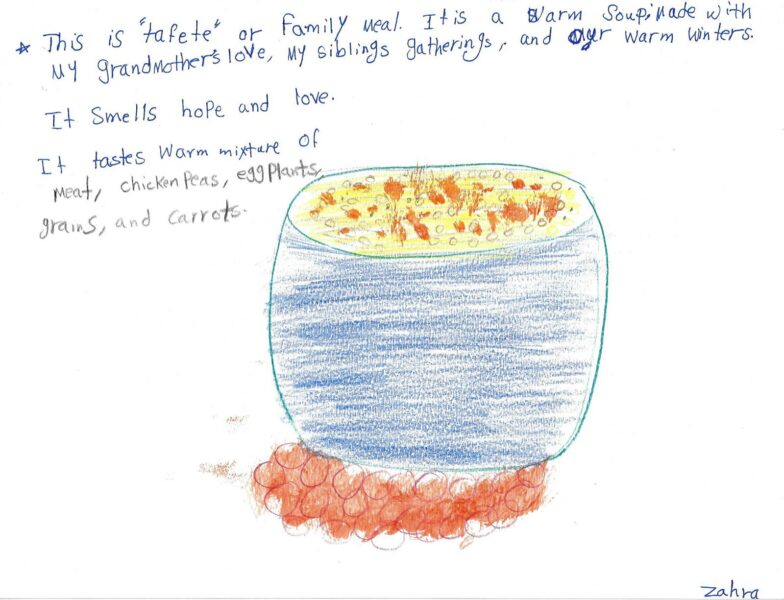 * This is "tafete" or family meal. It is a warm soup, made with
my grandmother's love, my siblings gatherings, and our warm winters.
It smells hope and love.
It tastes warm mixture of
meat, chicken peas, eggplants,
grains, and carrots.
zahra